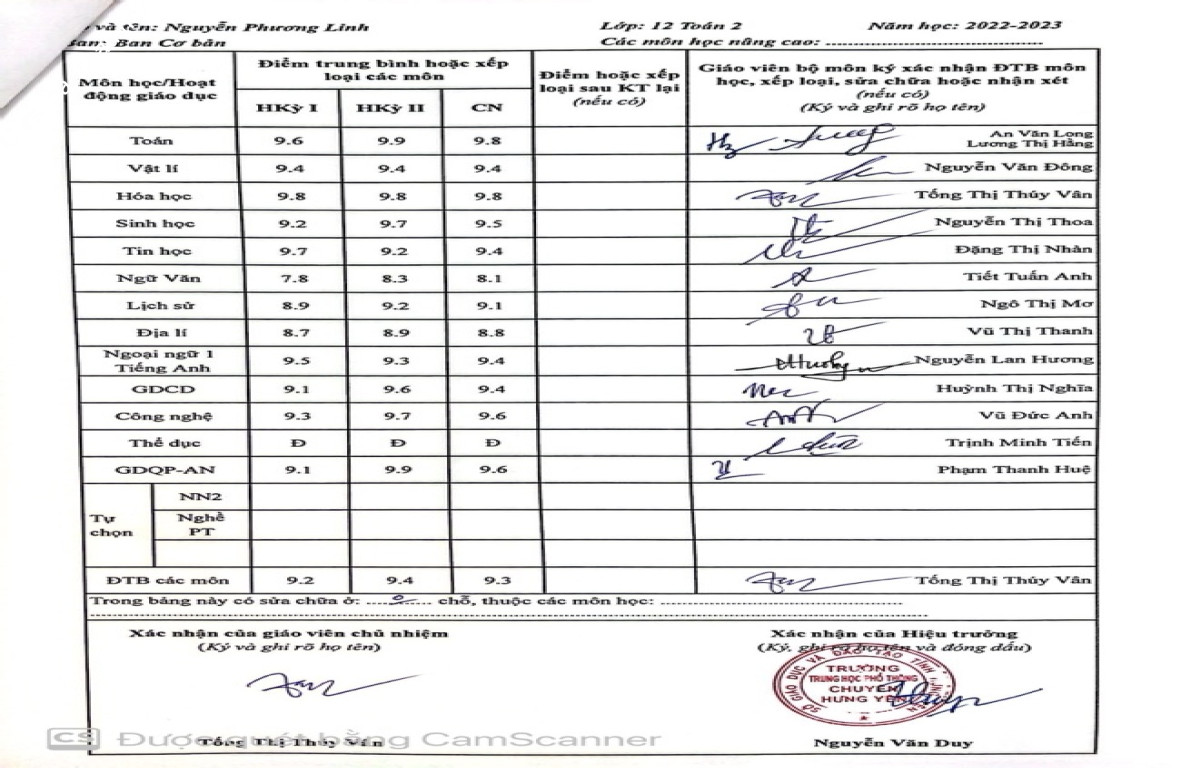 và tên: Nguyễn Phương Linh Lớp: 12 Toán 2 Năm học: 2022-2023
Ban: Ban Cơ bản Các môn học nâng cao: ....................................................
Môn học/Hoạt động giáo dục
Điểm trung bình hoặc xếp loại các môn
HKỳ I HKỳ II CN
Điểm hoặc xếp loại sau KT lại
(nếu có)
Giáo viên bộ môn ký xác nhận ĐTB môn học, xếp loại, sửa chữa hoặc nhận xét
(nếu có)
(Ký và ghi rõ họ tên)
Toán 9.6 9.9 9.8 An Văn Long
Lương Thị Hằng
Vật lí 9.4 9.4 9.4 Nguyễn Văn Đông
Hóa học 9.8 9.8 9.8 Tống Thị Thúy Vân
Sinh học 9.2 9.7 9.5 Nguyễn Thị Thoa
Tin học 9.7 9.2 9.4 Đặng Thị Nhàn
Ngữ Văn 7.8 8.3 8.1 Tiết Tuấn Anh
Lịch sử 8.9 9.2 9.1 Ngô Thị Mơ
Địa lí 8.7 8.9 8.8 Vũ Thị Thanh
Ngoại ngữ 1
Tiếng Anh 9.5 9.3 9.4 Nguyễn Lan Hương
GDCD 9.1 9.6 9.4 Huỳnh Thị Nghĩa
Công nghệ 9.3 9.7 9.6 Vũ Đức Anh
Thể dục Đ Đ Đ Trịnh Minh Tiến
GDQP-AN 9.1 9.9 9.6 Phạm Thanh Huệ
Tự chọn
NN2
Nghề PT
ĐTB các môn 9.2 9.4 9.3 Tống Thị Thúy Vân
Trong bảng này có sửa chữa ở: ....0.... chỗ, thuộc các môn học: ....................................................
Xác nhận của giáo viên chủ nhiệm
(Ký và ghi rõ họ tên)
Tống Thị Thúy Vân
Xác nhận của Hiệu trưởng
(Ký, ghi rõ họ tên và đóng dấu)
SỞ GIÁO DỤC VÀ ĐÀO TẠO TỈNH
TRƯỜNG
TRUNG HỌC PHỔ THÔNG
CHUYÊN
HƯNG YÊN
Nguyễn Văn Duy
CS Được quét bằng CamScanner